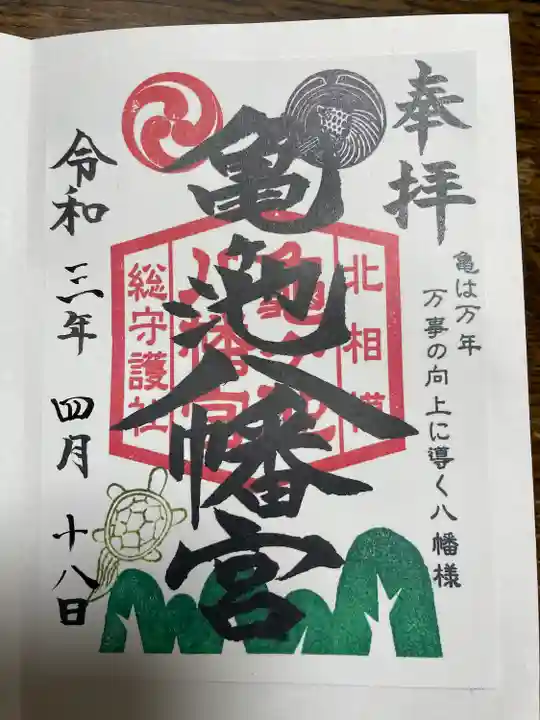 奉拝
亀は万年
万事の向上に導く八幡様
北相模
亀ヶ池
八幡宮
総守護社
亀池八幡宮
令和三年四月十八日